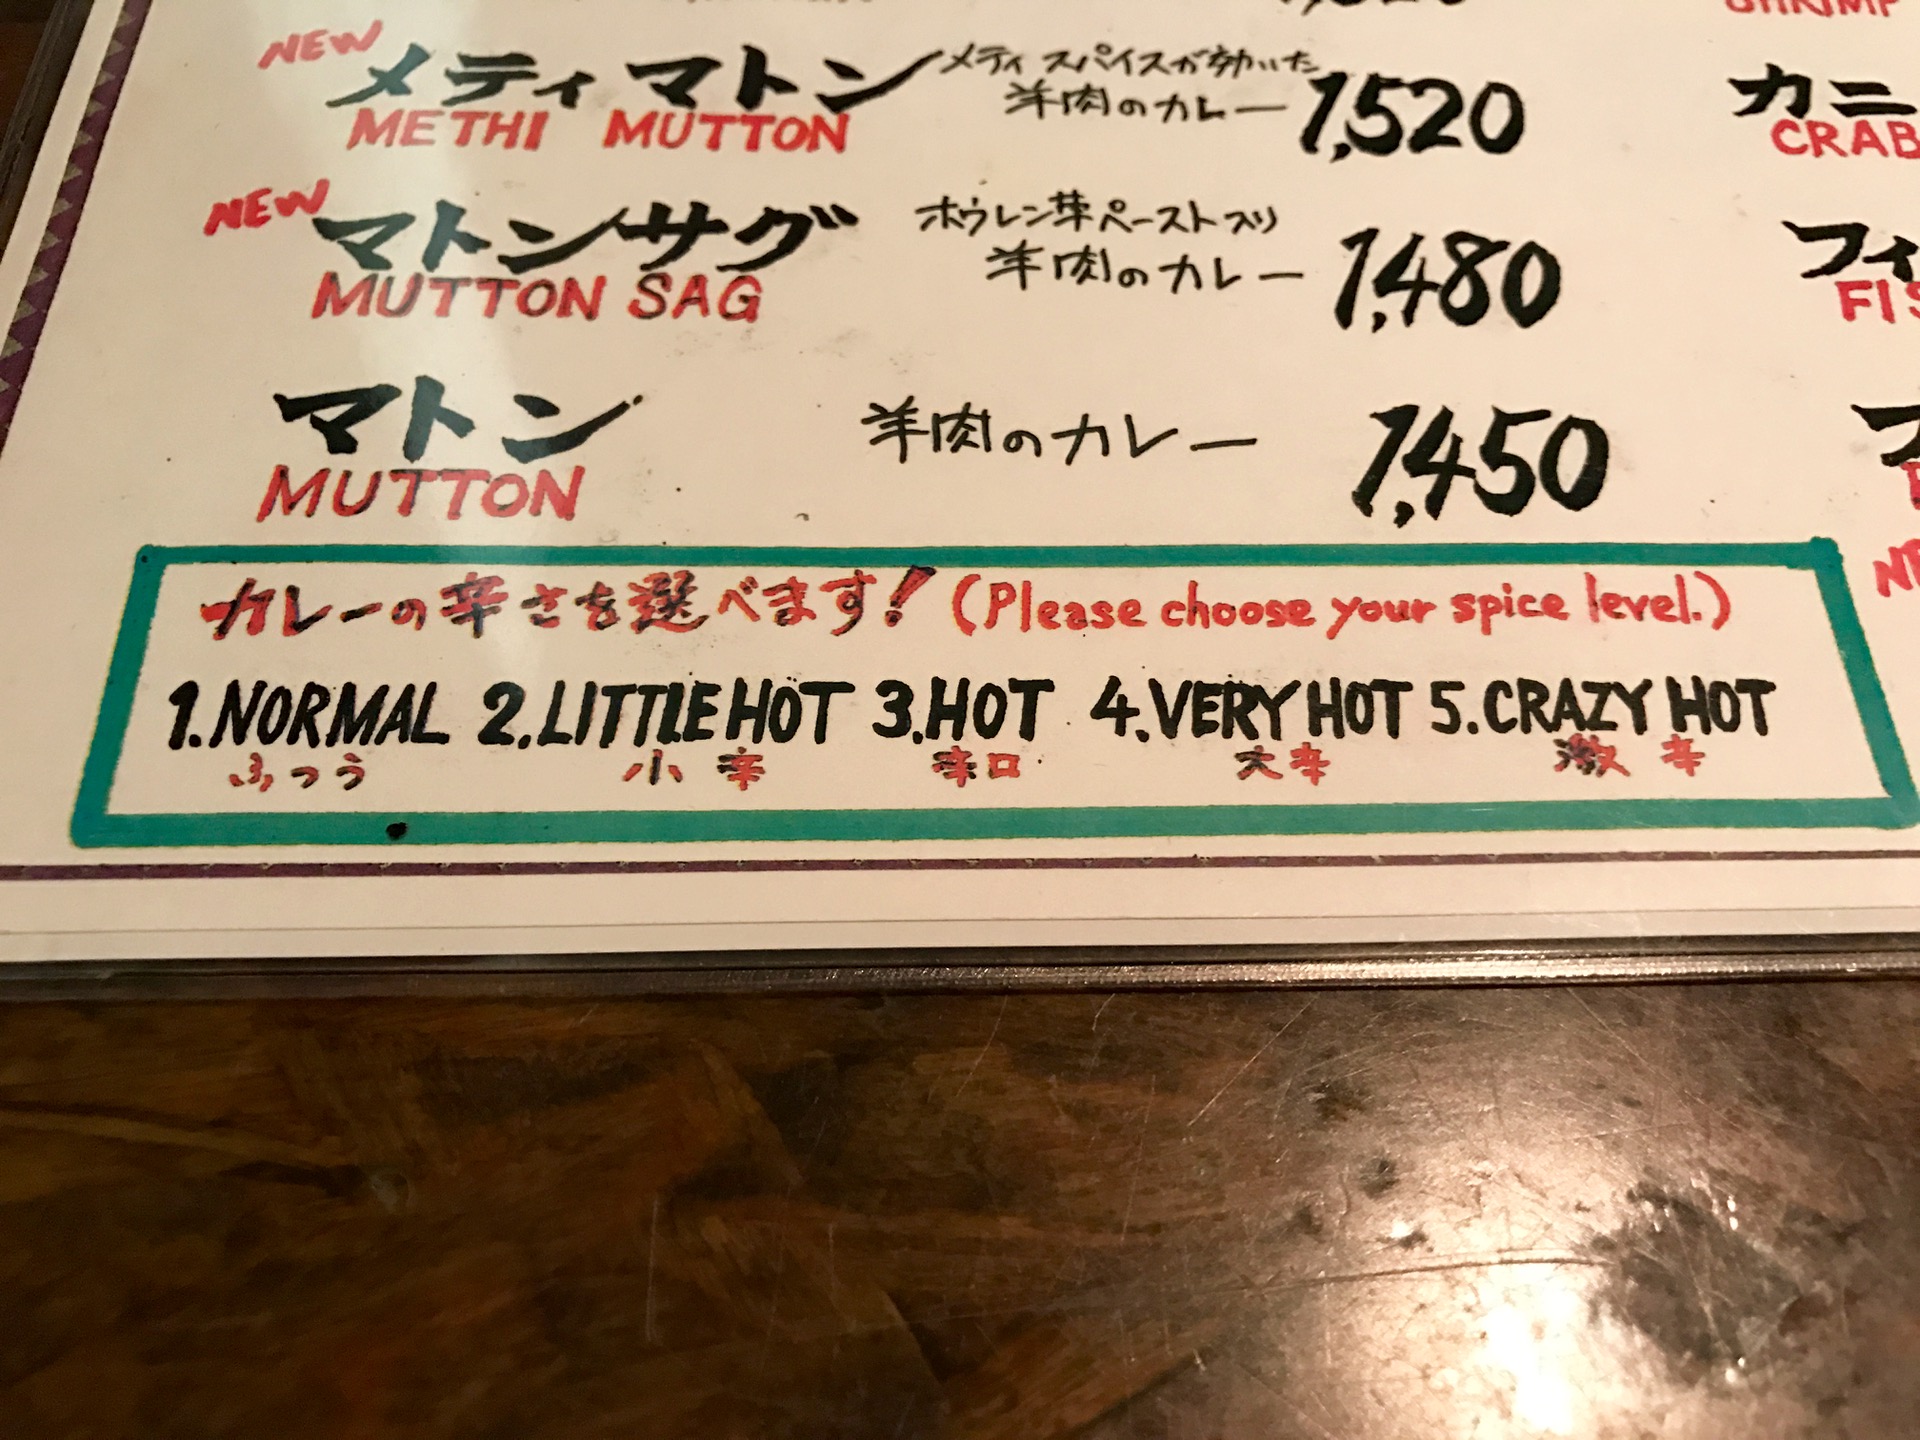 NEW
メティ マトン メティ スパイスが効いた 羊肉のカレー 1,520
METHI MUTTON
NEW
マトンサグ ホウレン草ペースト入り 羊肉のカレー 1,480
MUTTON SAG
マトン 羊肉のカレー 1,450
MUTTON
カレーの辛さを選べます! (Please choose your spice level.)
1.NORMAL 2.LITTLE HOT 3.HOT 4.VERY HOT 5.CRAZY HOT
ふつう 小辛 辛口 大辛 激辛
SHRIMP
カニ
CRAB
フィ
FIS